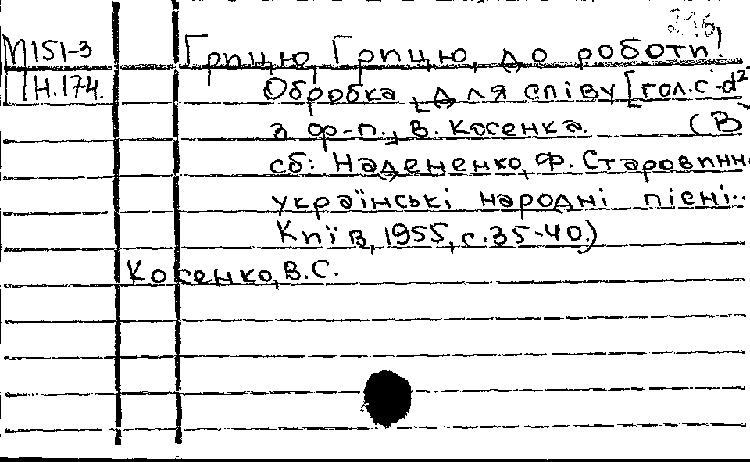 М151-3
Н.174.
Грицю, Грицю, до роботи!
Обробка для співу [гол. c-d²
з ф-п., В. Косенка. (В
сб: Надененко, Ф. Старовинн
українські народні пісні..
Київ, 1955, с.35-40.)
Косенко, В.С.